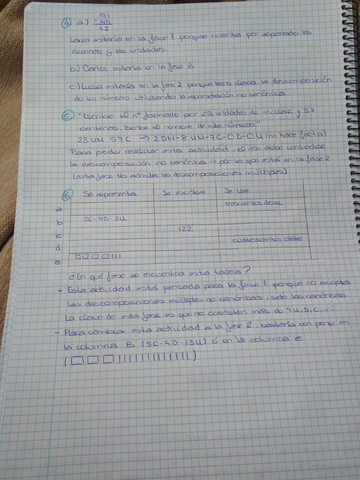 ④ a) 91
- 49
42
Laura estaría en la fase 1 porque cuenta por separado las
decenas y las unidades.
b) Carlos estaría en la fase 1.
c) Lucía estaría en la fase 2 porque tiene clara la descomposición
de un número utilizando la representación no canónica.
⑤ "Escribe el nº formado por 28 unidades de millar y 57
centenas. Escribe el nombre de este número"
28 UM 57 C ⇒ 2DM-8UM-7C-0D-0U (no hace falta)
Para poder realizar esta actividad, el niño debe controlar
la descomposición no canónica → por lo que está en la fase 2
(esta fase ya admite las descomposiciones múltiples)
⑥ Se representa Se escribe Se lee
a trescientos doce
b 3C-4D-3U
c 122
d cuatrocientos siete
e
¿En qué fase se encuentra esta tarea?
- Esta actividad está pensada para la fase 1 porque no acepta
las descomposiciones múltiples no canónicas, solo las canónicas.
La clave de esta fase es que no contienen más de 9U, D, C...
- Para cambiar esta actividad a la fase 2, bastaría con poner en
la columna B (3C-4D-13U) ó en la columna e